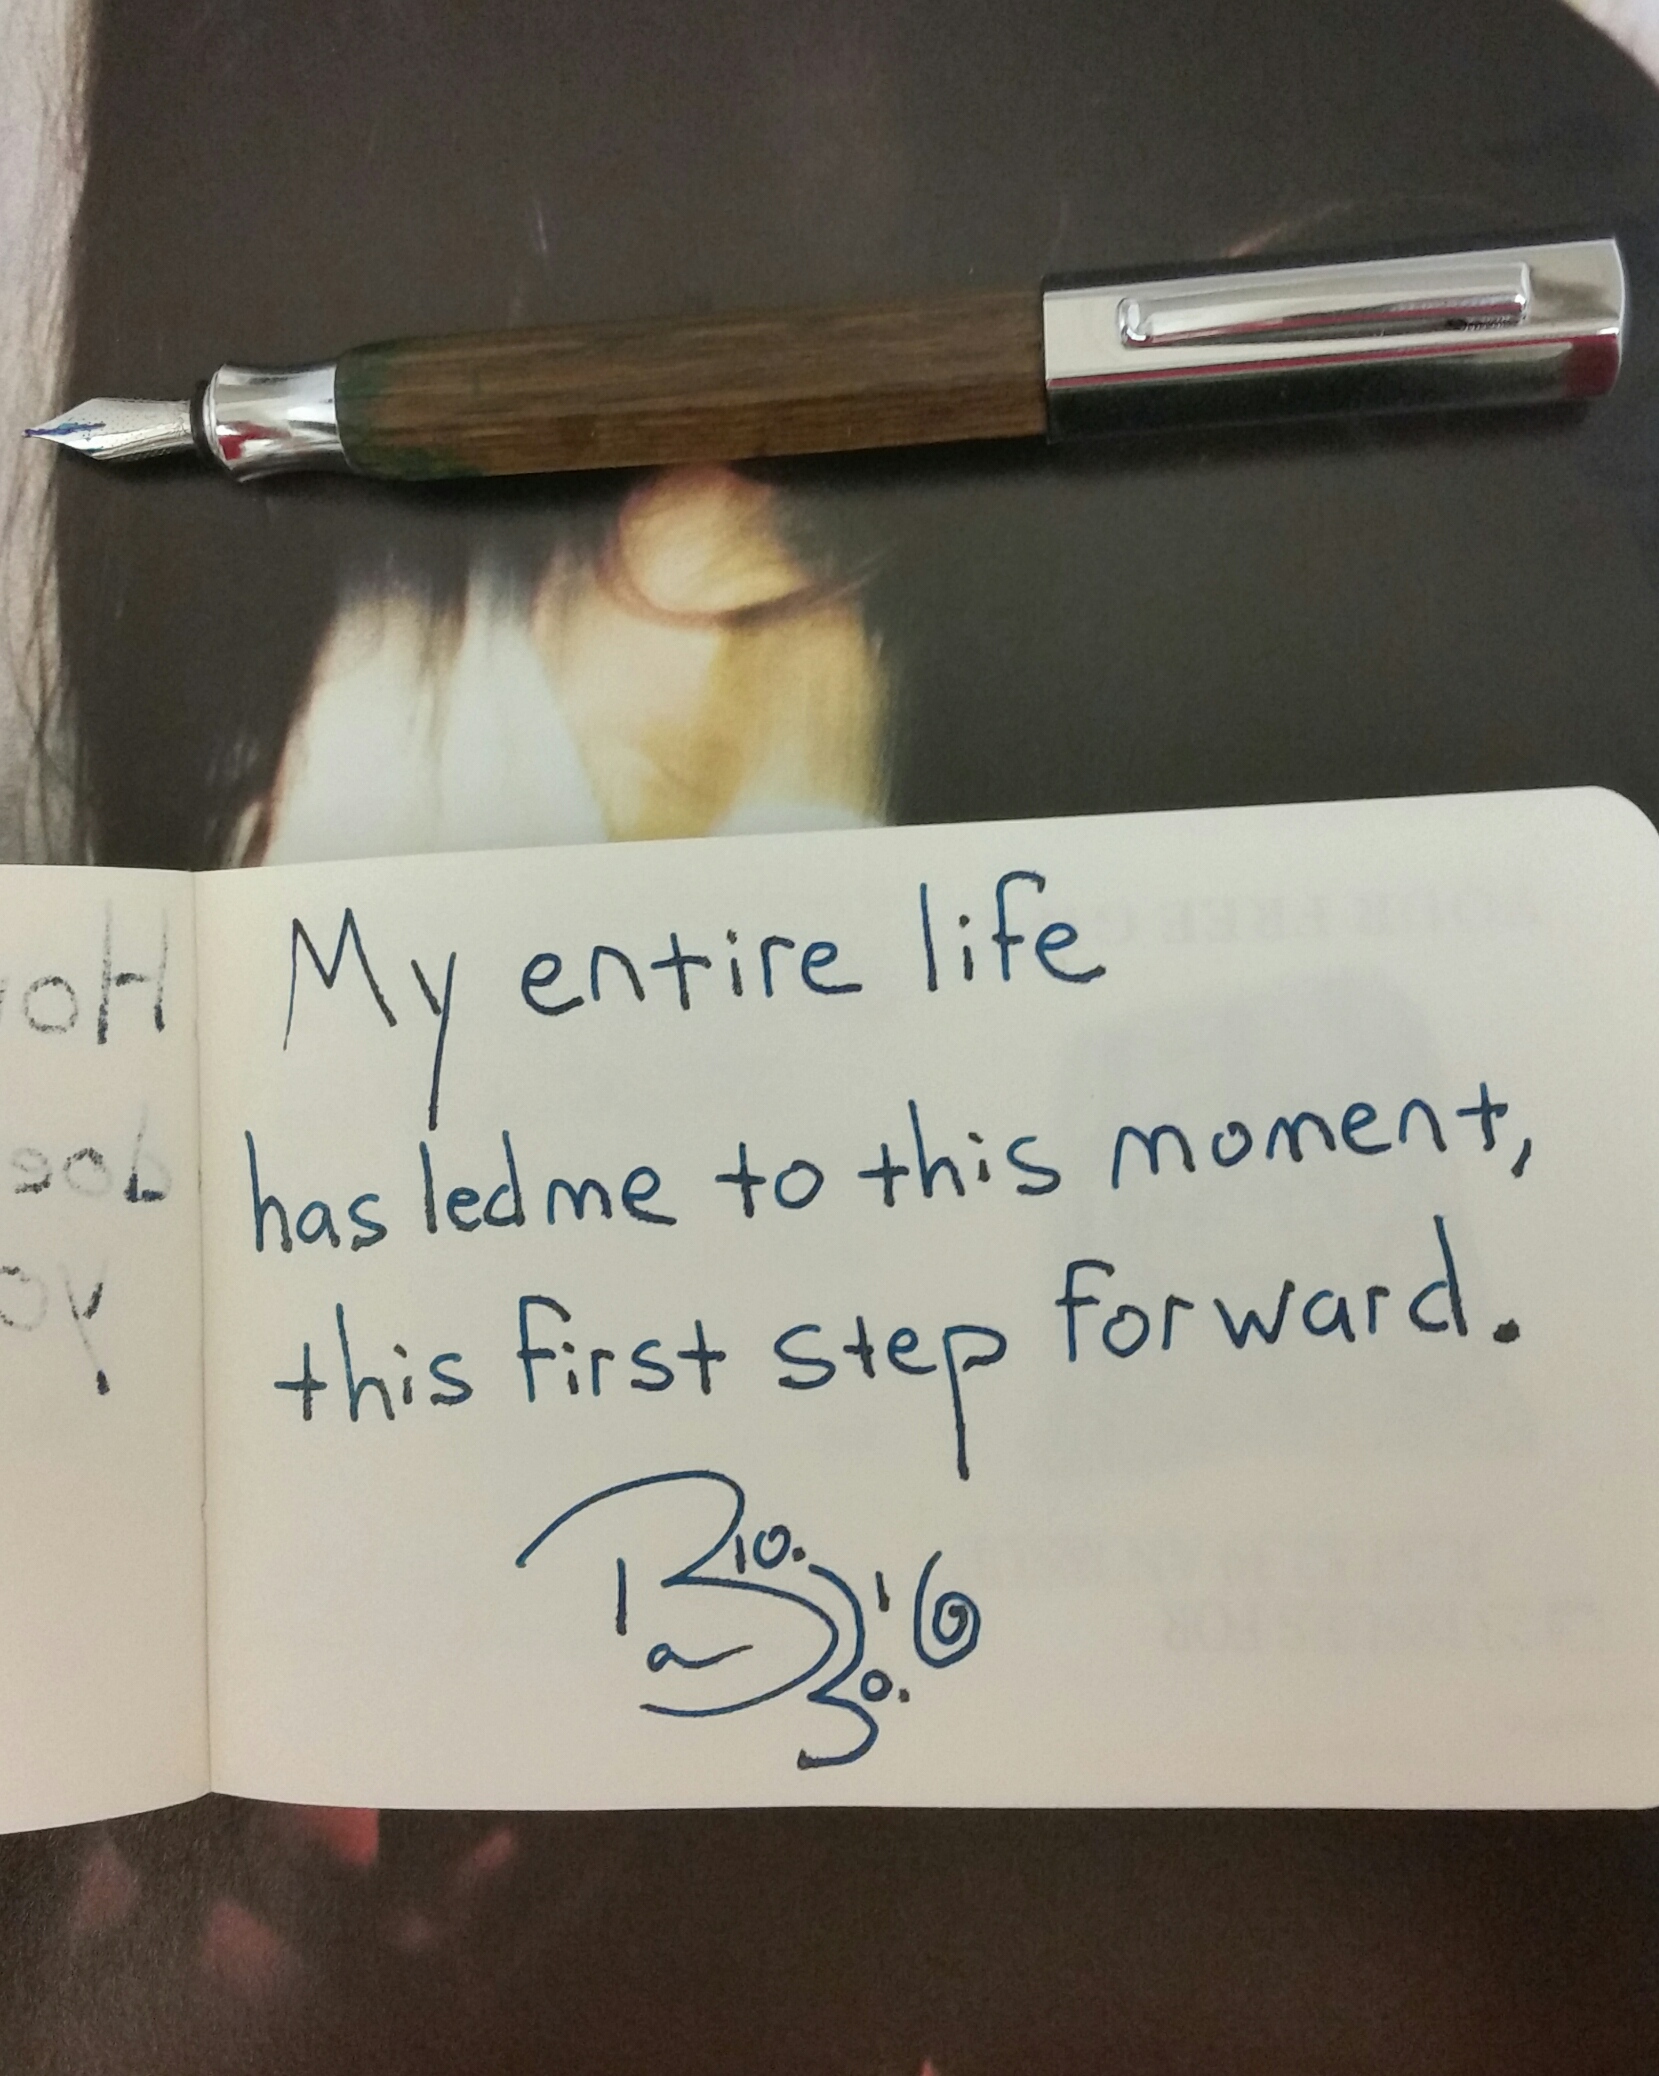 My entire life
has led me to this moment,
this first step forward.
10.
30.
'16